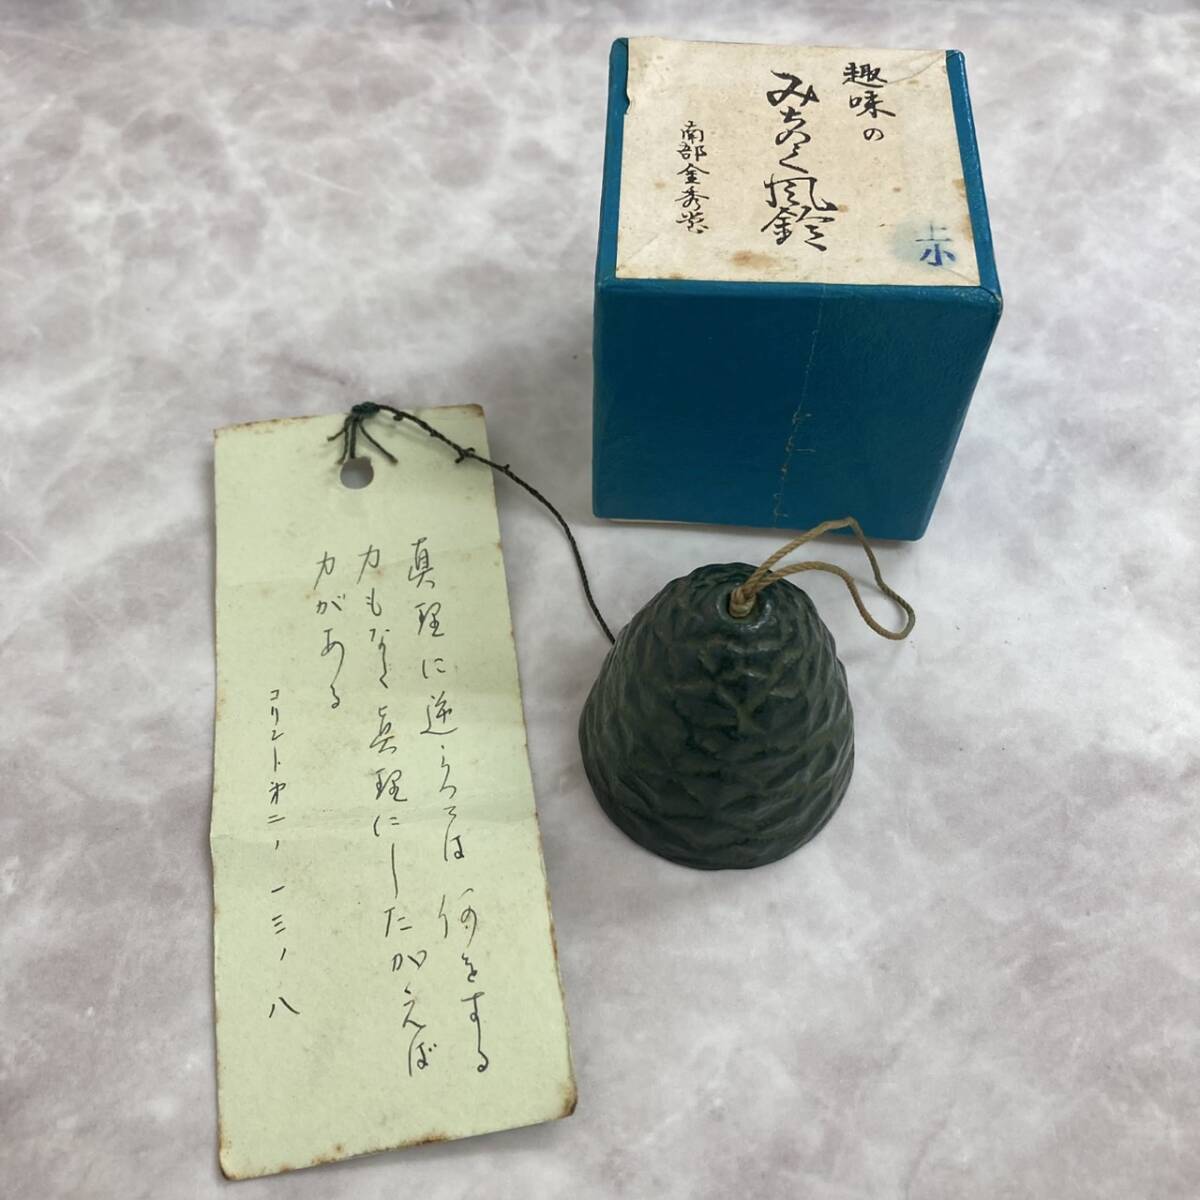 趣味の
みちのく風鈴
南部金秀堂
上
小
真理に逆らっては何をする
力もなく真理にしたがえば
力がある
コリント第二、一三、八